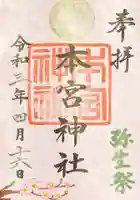 奉拝
弥生祭
本宮神社
令和三年四月十六日